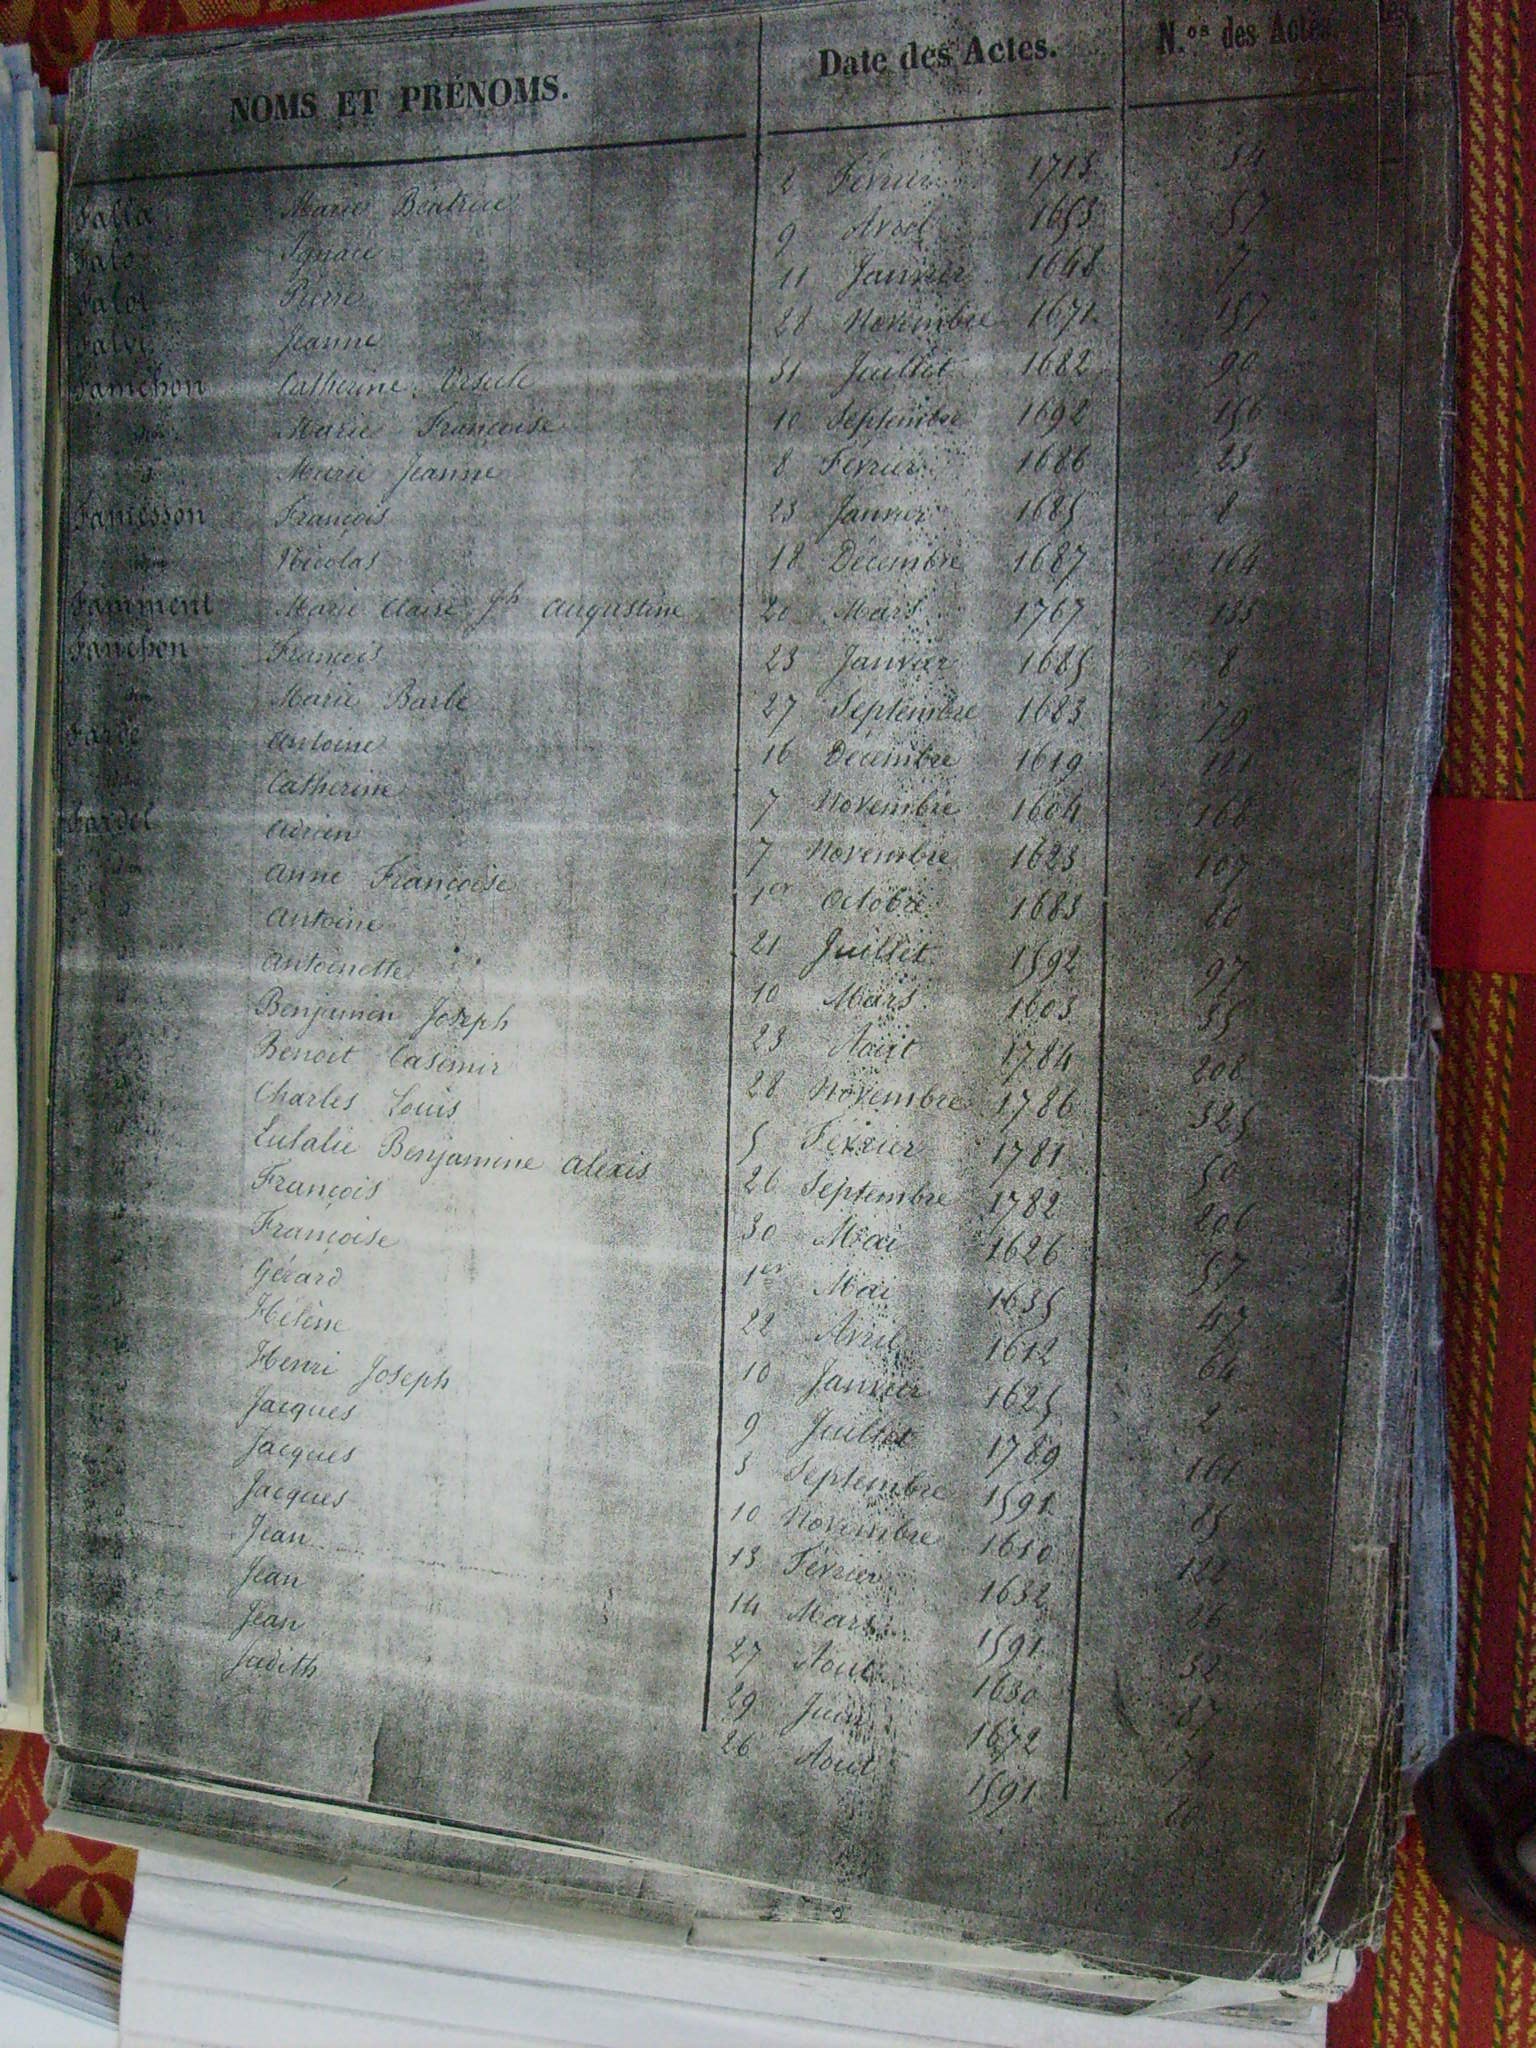 NOMS ET PRÉNOMS. Date des Actes. N.os des Actes.
Falla Marie Béatrice 2 Février 1713 34
Falo Ignace 9 Avril 1653 57
Faloi Pierre 11 Janvier 1648 7
Jeanne 28 Novembre 1671 157
Faméhon Catherine Ursule 31 Juillet 1682 90
Marie Françoise 10 Septembre 1692 156
Marie Jeanne 8 Février 1686 23
Famesson François 23 Janvier 1685 8
Nicolas 18 Décembre 1687 164
Famment Marie Claire Jh Augustine 20 Mars 1767 135
Fanchon François 23 Janvier 1685 8
Marie Barbe 27 Septembre 1683 79
Farde Antoine 16 Décembre 1619 121
Catherine 7 Novembre 1604 168
Fardel Adrien 7 Novembre 1623 107
Anne Françoise 1er Octobre 1683 80
d Antoine 21 Juillet 1592 97
Antoinette 10 Mars 1603 35
Benjamin Joseph 23 Aout 1784 208
Benoit Casimir 28 Novembre 1786 325
Charles Louis 5 Février 1781 50
Eulalie Benjamine Alexis 26 Septembre 1782 206
François 30 Mai 1626 57
Françoise 1er Mai 1635 47
Gérard 22 Avril 1612 64
Hélène 10 Janvier 1625 2
Henri Joseph 9 Juillet 1789 161
Jacques 3 Septembre 1591 85
Jacques 10 Novembre 1610 122
Jacques 13 Février 1632 26
Jean 14 Mars 1591 32
Jean 27 Aout 1630 87
Jean 29 Juin 1672
Judith 26 Aout 1591 80